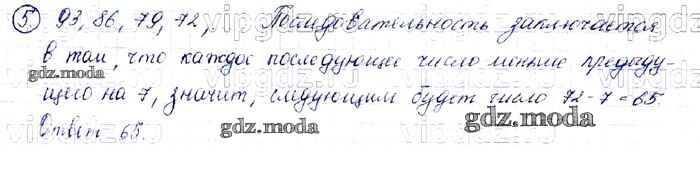 5 93, 86, 79, 72, Последовательность заключается
в том, что каждое последующее число меньше предыду
gdz.moda gdz.moda
щего на 7, значит, следующим будет число 72-7=65.
Ответ 65. gdz.moda